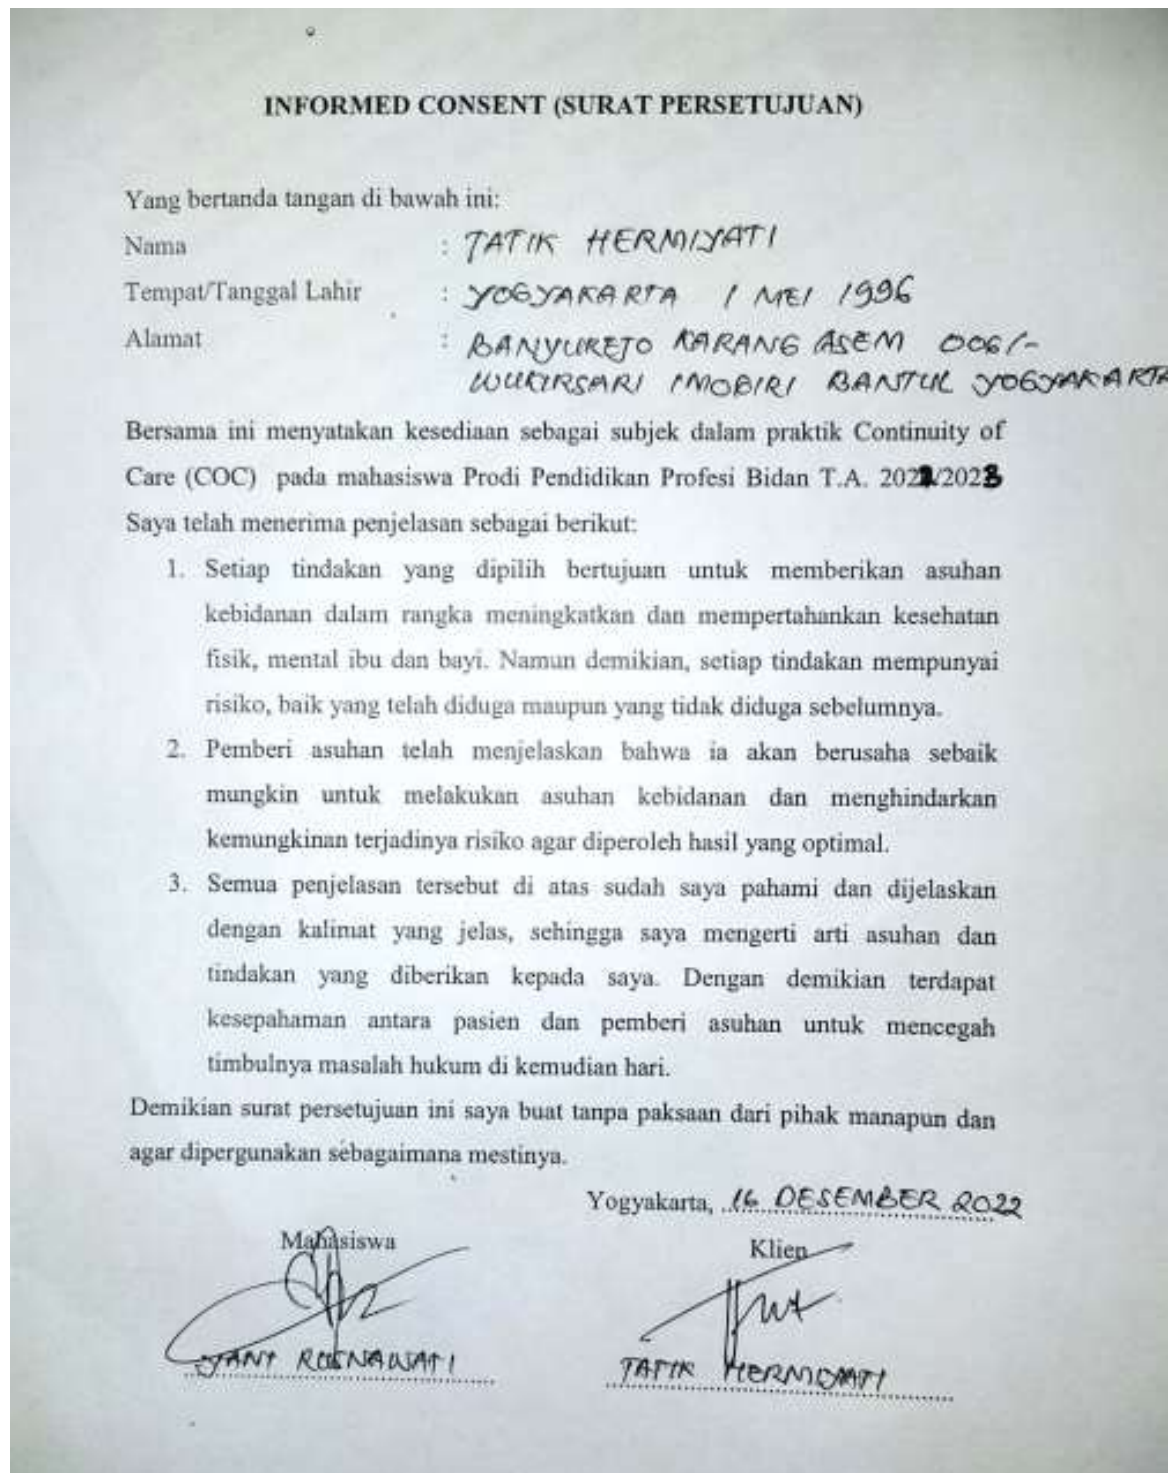 INFORMED CONSENT (SURAT PERSETUJUAN)
Yang bertanda tangan di bawah ini:
Nama : TATIK HERMIYATI
Tempat/Tanggal Lahir : YOGYAKARTA 1 MEI 1996
Alamat : BANYUREJO KARANG ASEM 006/-
WUKIRSARI IMOGIRI BANTUL YOGYAKARTA
Bersama ini menyatakan kesediaan sebagai subjek dalam praktik Continuity of
Care (COC) pada mahasiswa Prodi Pendidikan Profesi Bidan T.A. 2022/2023
Saya telah menerima penjelasan sebagai berikut:
1. Setiap tindakan yang dipilih bertujuan untuk memberikan asuhan
kebidanan dalam rangka meningkatkan dan mempertahankan kesehatan
fisik, mental ibu dan bayi. Namun demikian, setiap tindakan mempunyai
risiko, baik yang telah diduga maupun yang tidak diduga sebelumnya.
2. Pemberi asuhan telah menjelaskan bahwa ia akan berusaha sebaik
mungkin untuk melakukan asuhan kebidanan dan menghindarkan
kemungkinan terjadinya risiko agar diperoleh hasil yang optimal.
3. Semua penjelasan tersebut di atas sudah saya pahami dan dijelaskan
dengan kalimat yang jelas, sehingga saya mengerti arti asuhan dan
tindakan yang diberikan kepada saya. Dengan demikian terdapat
kesepahaman antara pasien dan pemberi asuhan untuk mencegah
timbulnya masalah hukum di kemudian hari.
Demikian surat persetujuan ini saya buat tanpa paksaan dari pihak manapun dan
agar dipergunakan sebagaimana mestinya.
Yogyakarta, 16 DESEMBER 2022
Mahasiswa Klien
YANI ROSNAWATI TATIK HERMIYATI